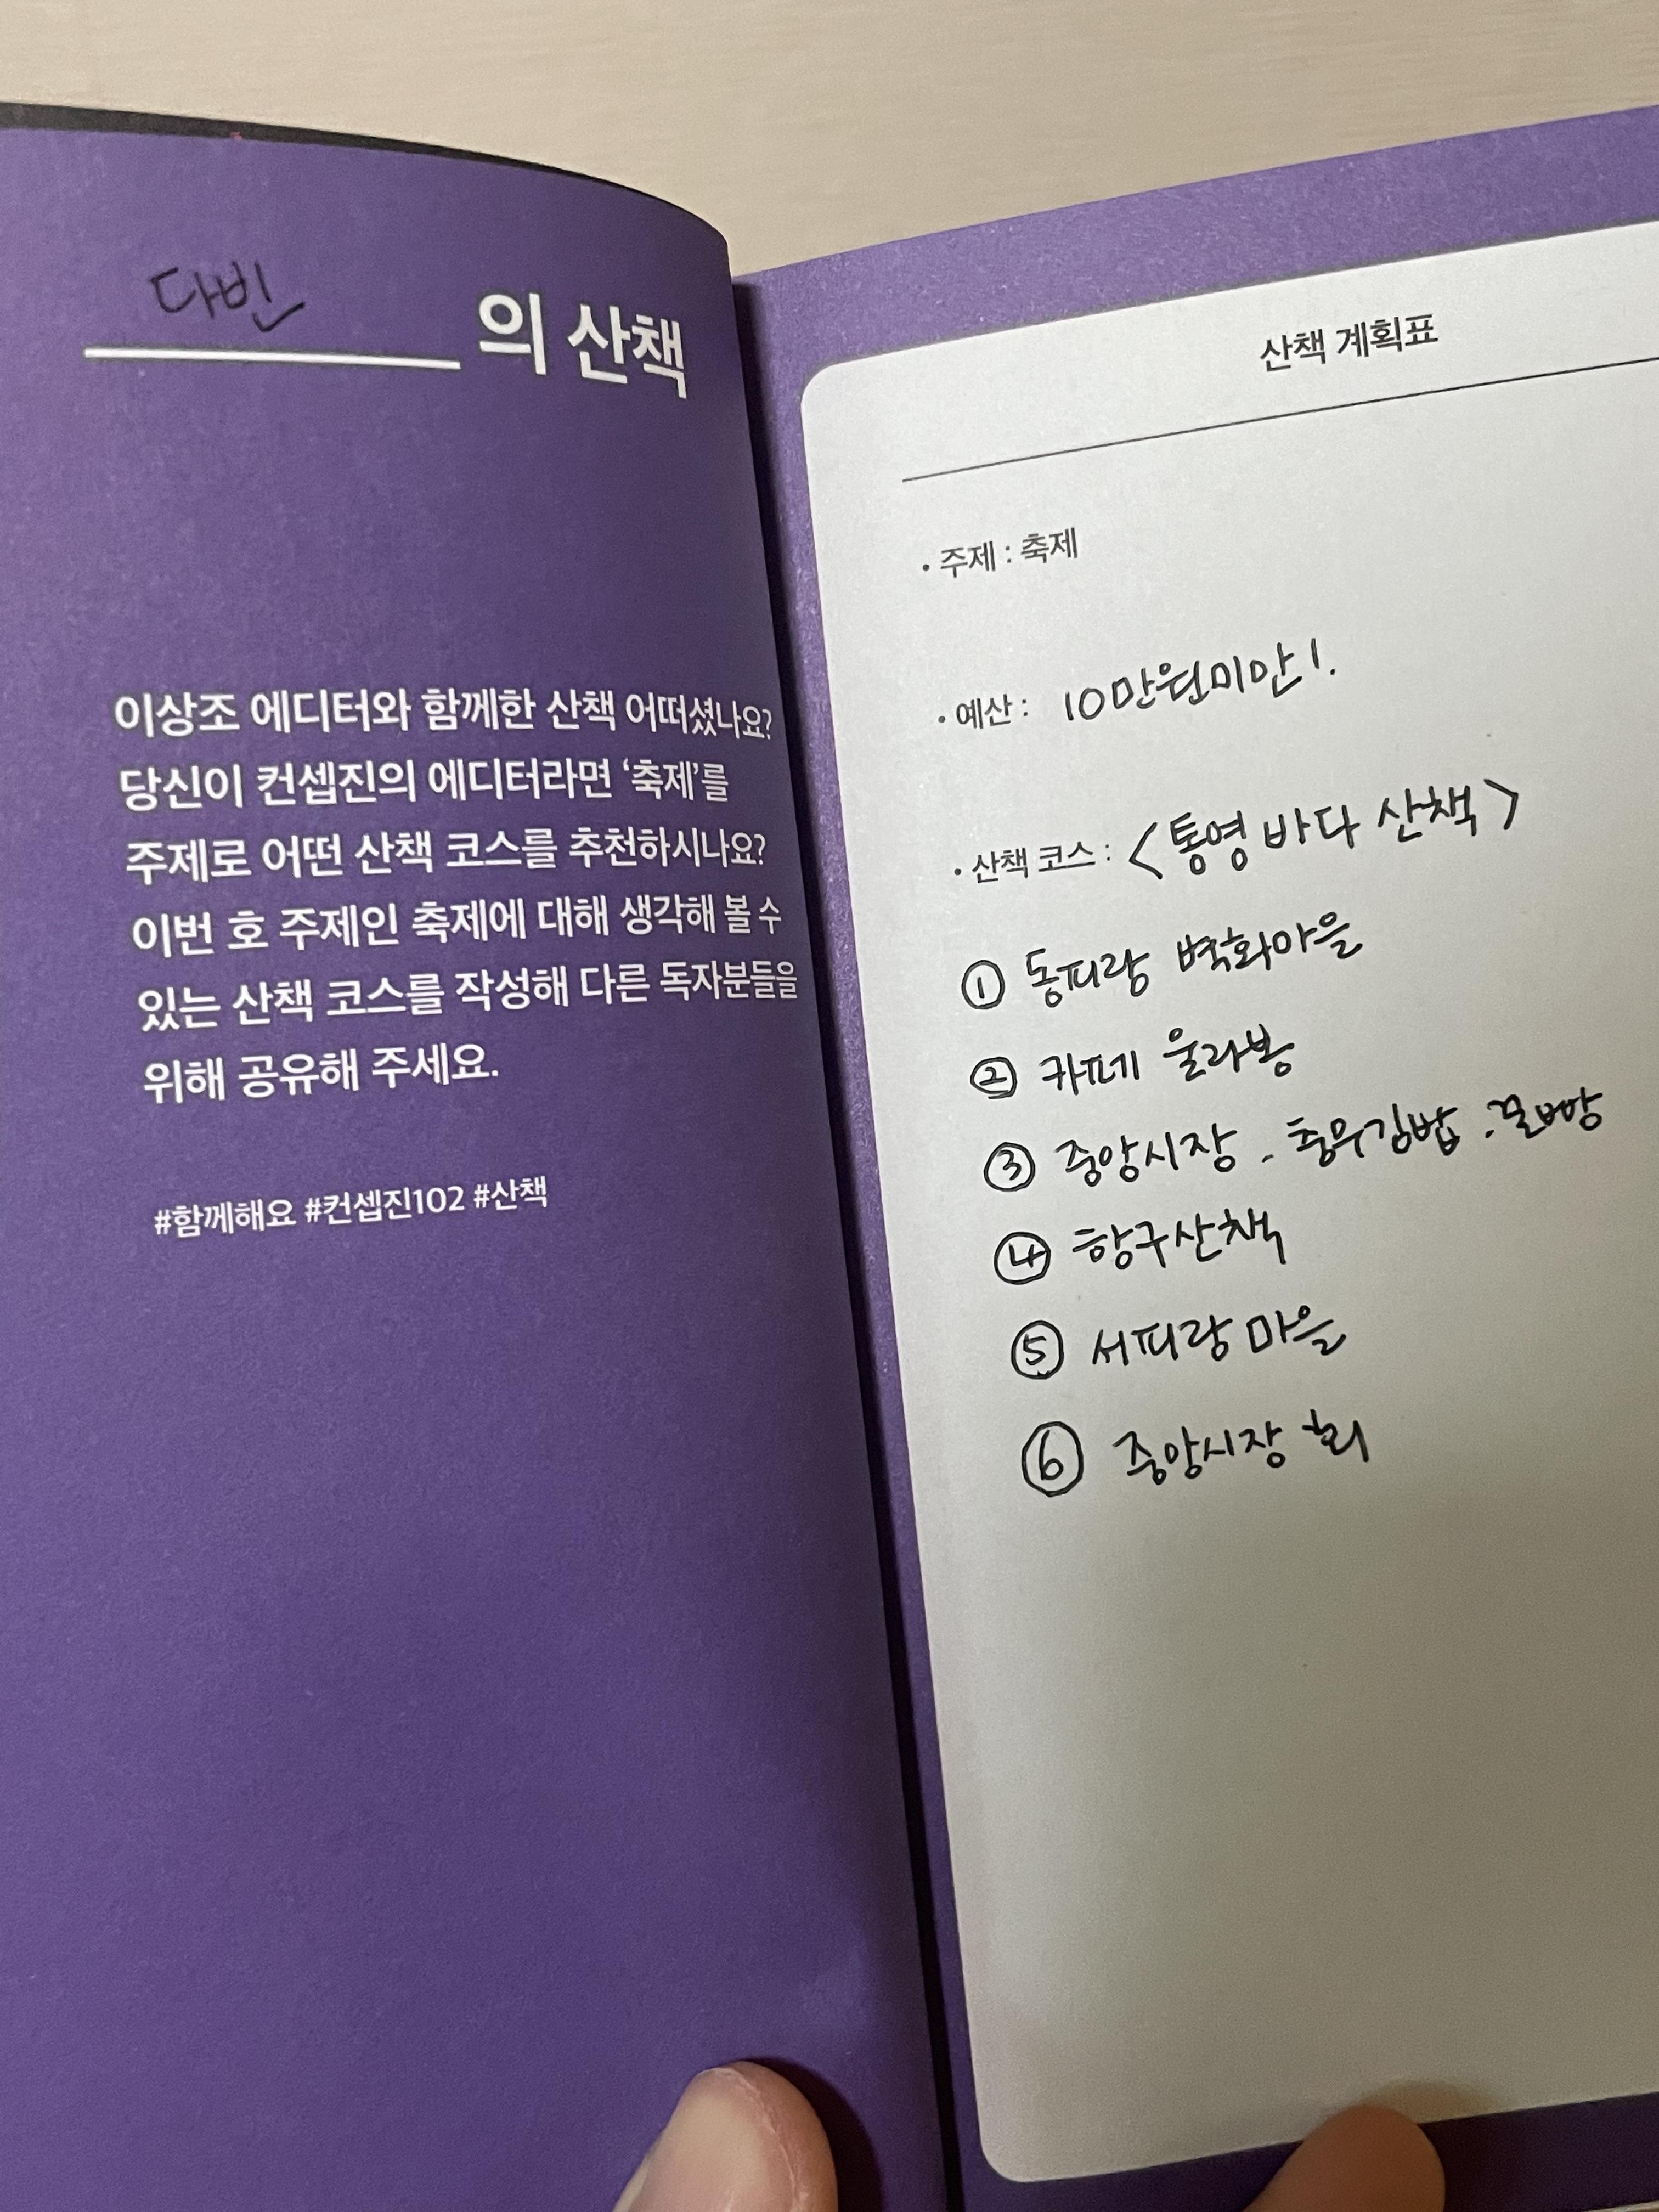 다빈 의 산책
이상조 에디터와 함께한 산책 어떠셨나요?
당신이 컨셉진의 에디터라면 ‘축제’를
주제로 어떤 산책 코스를 추천하시나요?
이번 호 주제인 축제에 대해 생각해 볼 수
있는 산책 코스를 작성해 다른 독자분들을
위해 공유해 주세요.
#함께해요 #컨셉진102 #산책
산책 계획표
• 주제 : 축제
• 예산 : 10만원미만!.
• 산책 코스 : <통영 바다 산책>
① 동피랑 벽화마을
② 카페 울라봉
③ 중앙시장 - 충무김밥 . 꿀빵
④ 항구산책
⑤ 서피랑 마을
⑥ 중앙시장 회